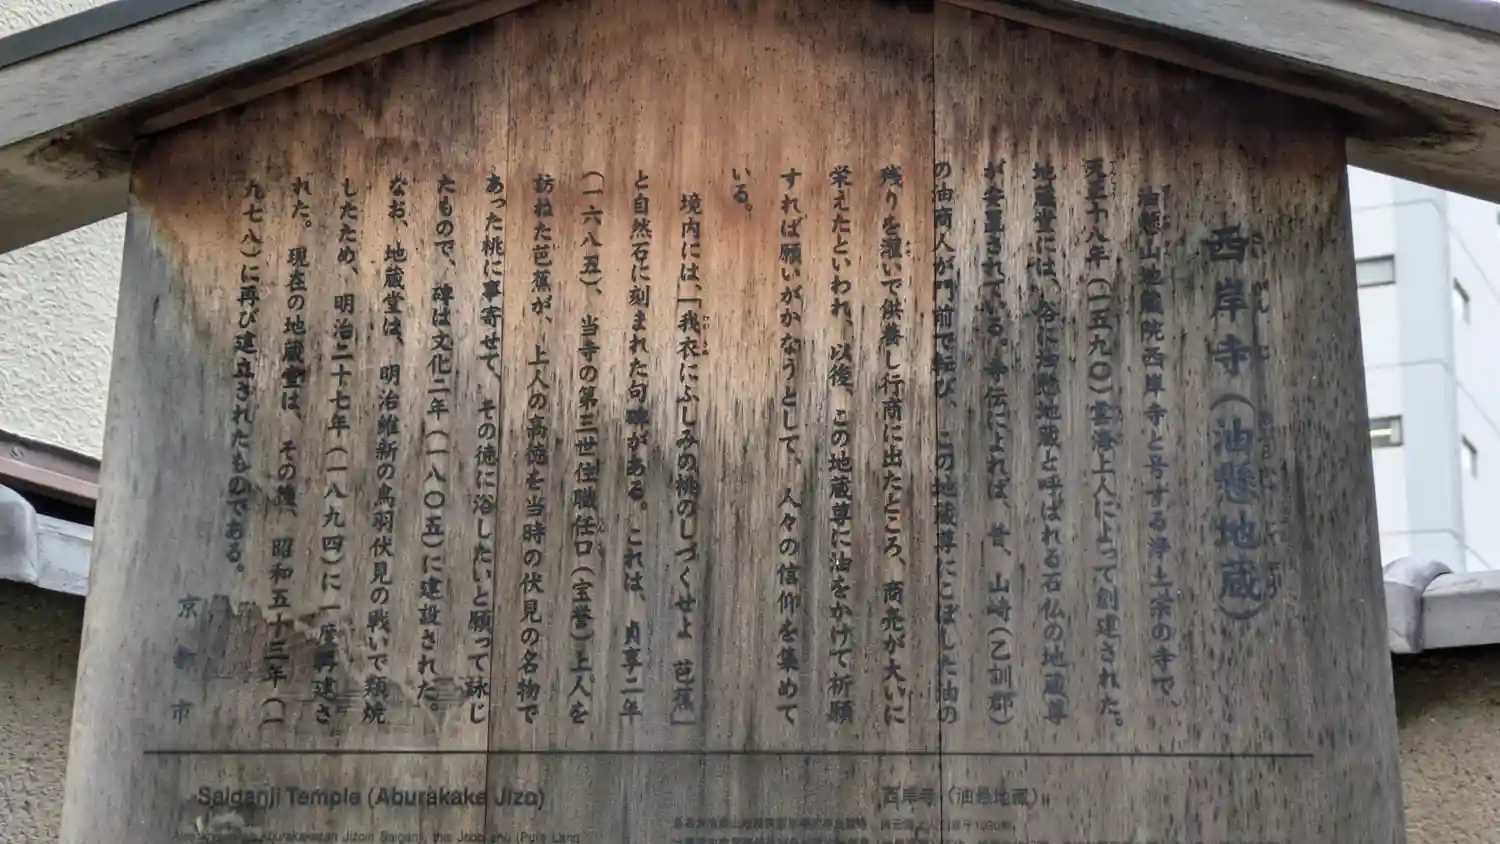 西岸寺（油懸地蔵）
油懸山地蔵院西岸寺と号する浄土宗の寺で、
天正十八年（一五九〇）雲海上人によって創建された。
地蔵堂には、俗に油懸地蔵と呼ばれる石仏の地蔵尊
が安置されている。寺伝によれば、昔、山崎（乙訓郡）
の油商人が門前で転び、この地蔵尊にこぼした油の
残りを灌いで供養し行商に出たところ、商売が大いに
栄えたといわれ、以後、この地蔵尊に油をかけて祈願
すれば願いがかなうとして、人々の信仰を集めて
いる。
境内には、「我衣にふしみの桃のしづくせよ 芭蕉」
と自然石に刻まれた句碑がある。これは、貞享二年
（一六八五）、当寺の第三世住職任口（宝誉）上人を
訪ねた芭蕉が、上人の高徳を当時の伏見の名物で
あった桃に事寄せて、その徳に浴したいと願って詠じ
たもので、碑は文化二年（一八〇五）に建設された。
なお、地蔵堂は、明治維新の鳥羽伏見の戦いで類焼
したため、明治二十七年（一八九四）に一度再建さ
れた。現在の地蔵堂は、その後、昭和五十三年（一
九七八）に再び建立されたものである。
京都市
Saiganji Temple (Aburakake Jizo)
西岸寺（油懸地蔵）